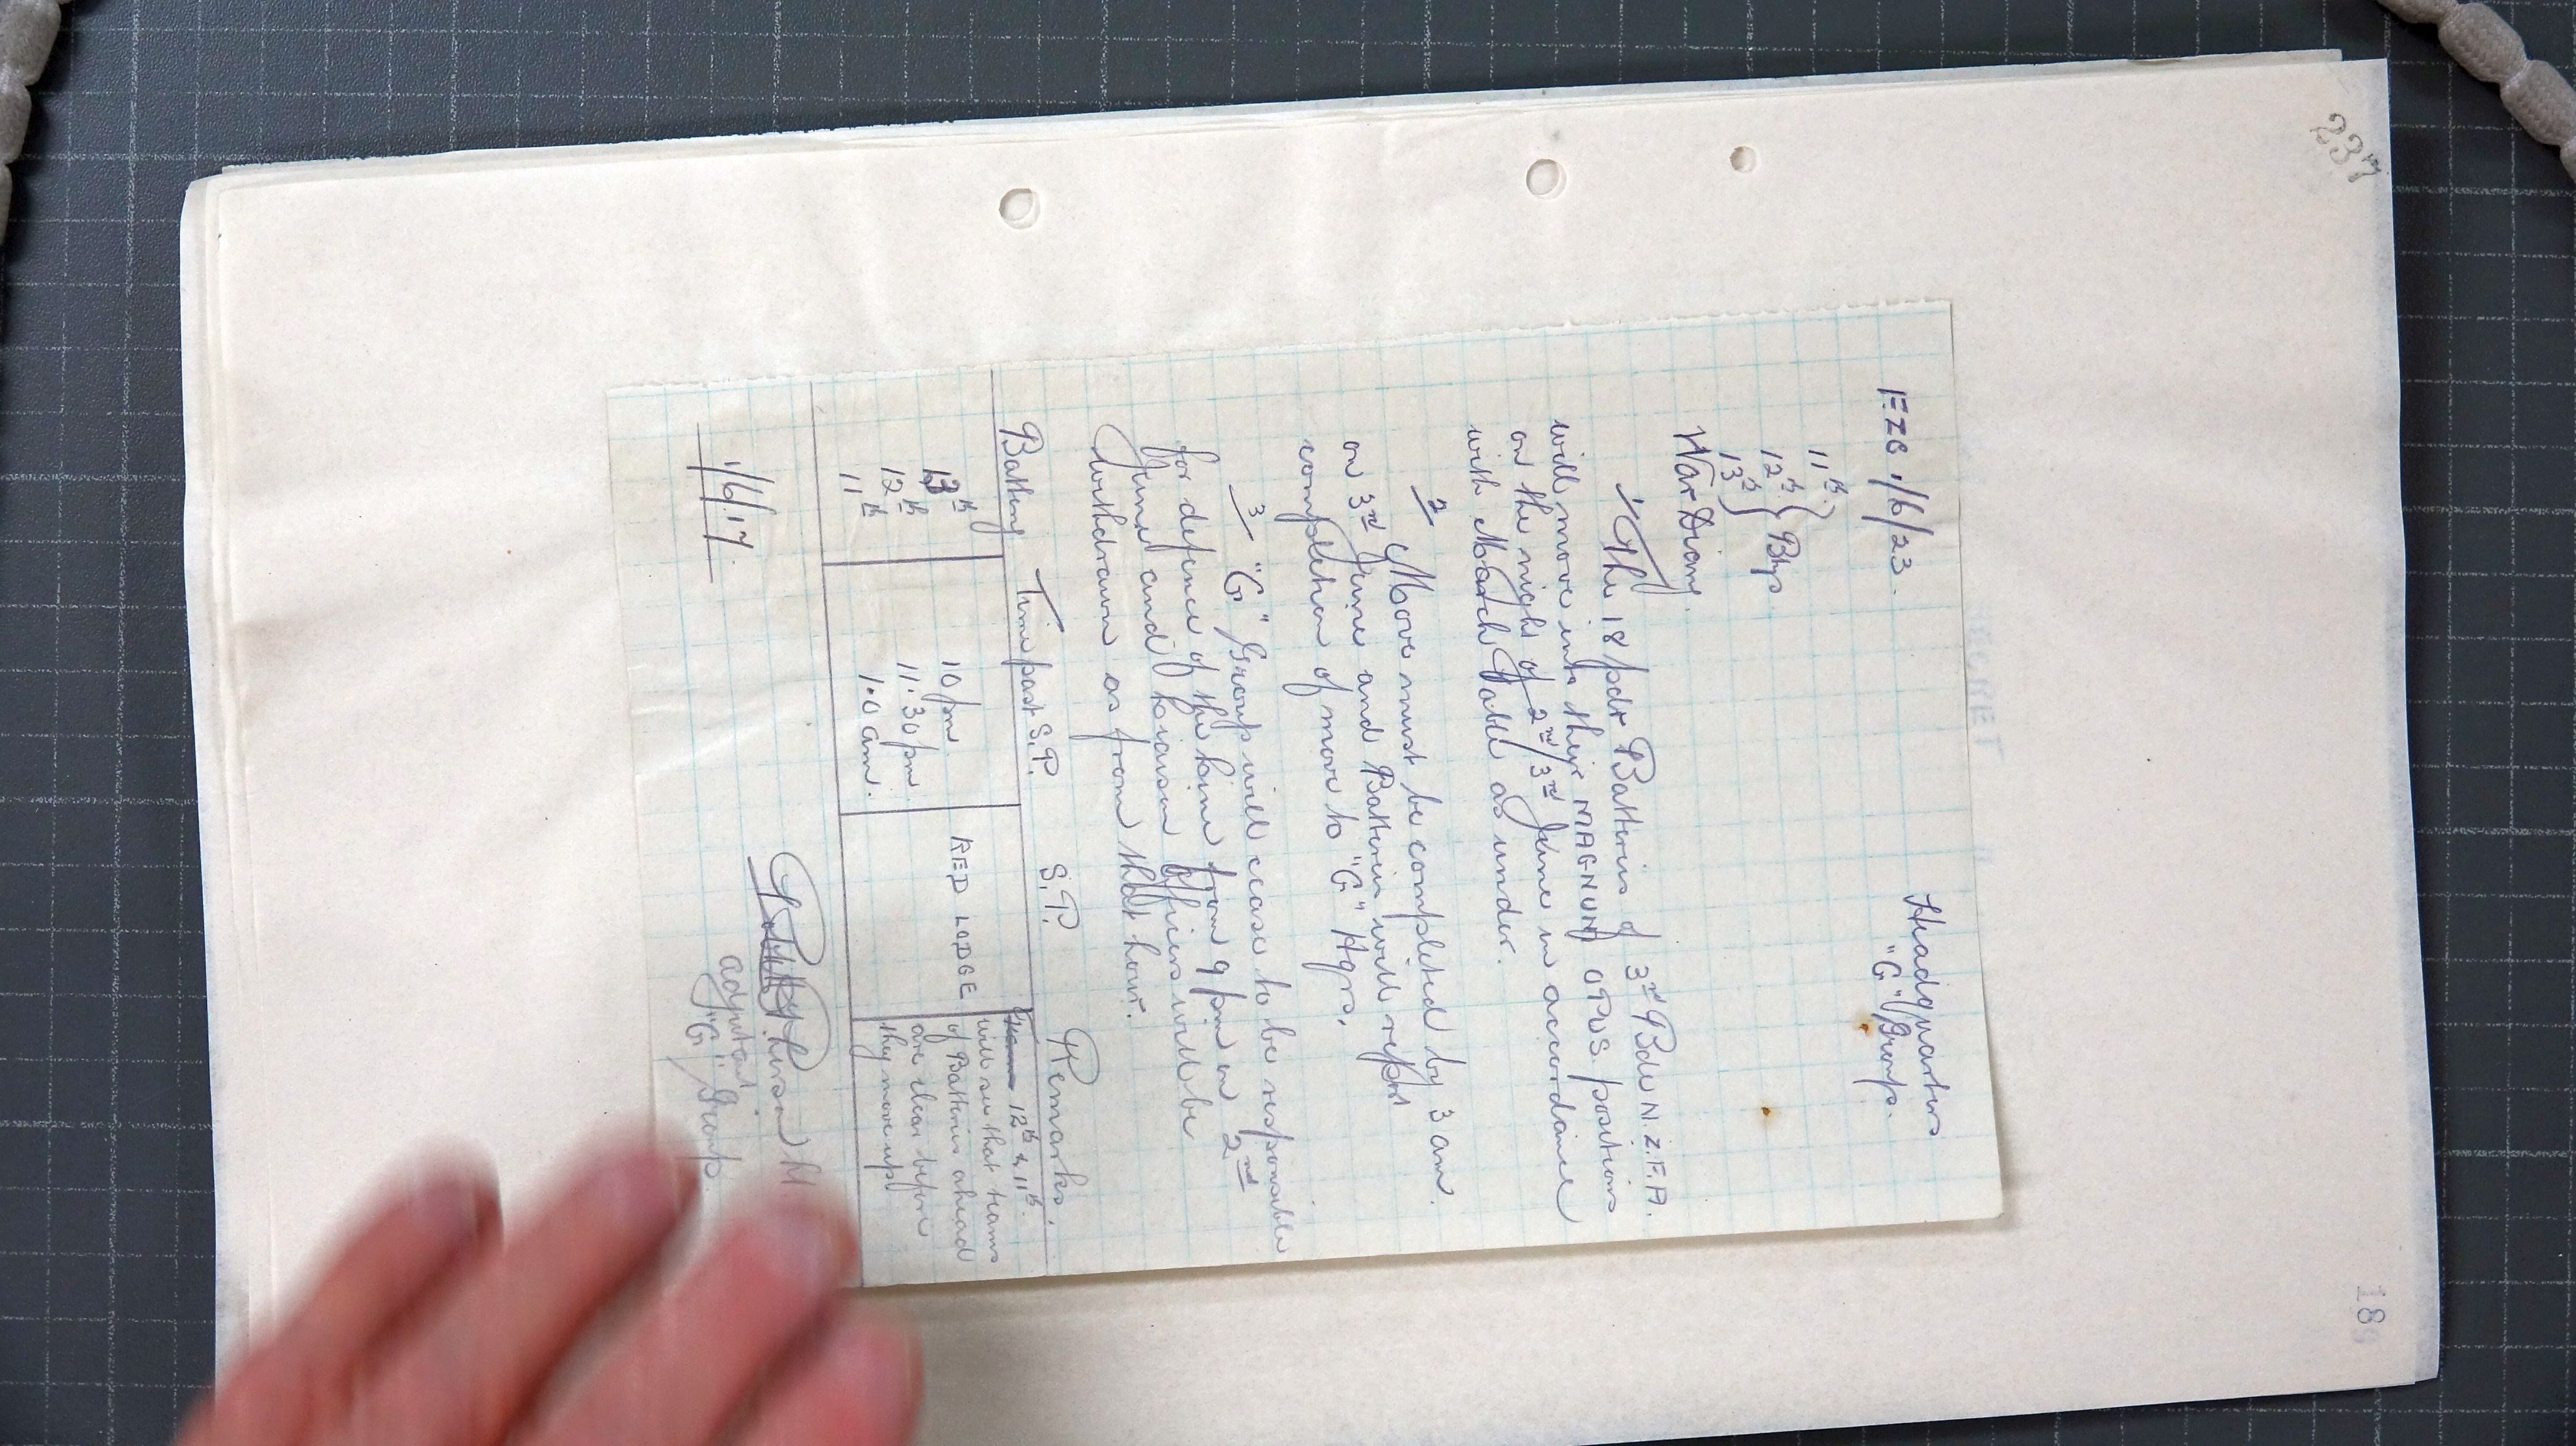 237
SECRET
Headquarters
"G" Group.
FZC 1/6/23.
11th
12th } Btys
13th
War Diary.
1/ The 18 pdr Batteries of 3rd Bde N.Z.F.A.
will move into their MAGNUM OPUS positions
on the night of 2nd/3rd June in accordance
with March Table as under.
2/ Move must be completed by 3 am.
on 3rd June and Batteries will report
completion of move to "G" Hqrs.
3/ "G" Group will cease to be responsible
for defence of the line from 9 pm on 2nd
June and liaison officers will be
withdrawn as from that hour.
Battery Time past S.P. S.P. Remarks.
13th 10 pm RED LODGE 12th & 11th
12th 11.30 pm will see that teams
11th 1.0 am. of Batteries ahead
are clear before
they move up
Lt
1/6/17. adjutant
"G" Group.
18